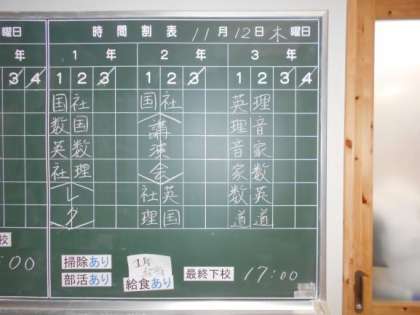 曜日 時間割表 11月12日木曜日
年 1年 2年 3年
3 4 1 2 3 1 2 3 1 2 3
国 社 国 社 英 理
数 国 講 理 音
英 数 演 音 家
社 理 会 家 数
レク 社 英 数 英
理 国 道 道
校 掃除あり 1年 最終下校 17:00
:00 部活あり 給食あり